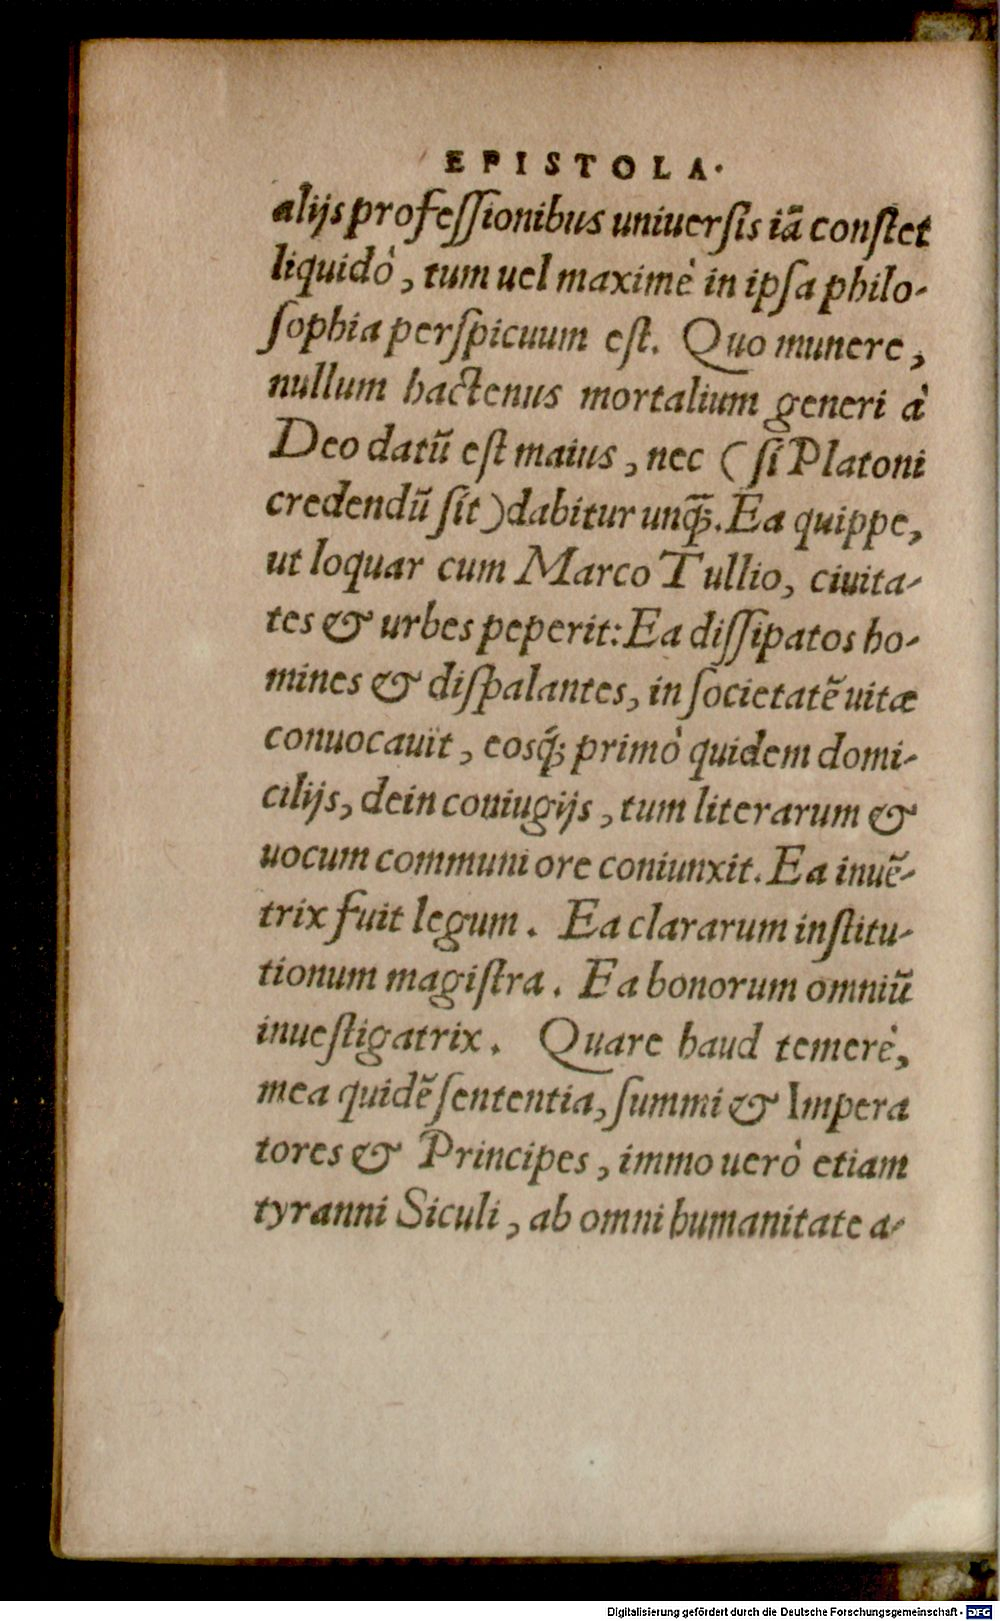 EPISTOLA.
alijs professionibus uniuersis iā constet
liquidò, tum uel maximè in ipsa philo-
sophia perspicuum est. Quo munere,
nullum hactenus mortalium generi à
Deo datū est maius, nec (si Platoni
credendū sit) dabitur unq̄ꝫ. Ea quippe,
ut loquar cum Marco Tullio, ciuita-
tes & urbes peperit: Ea dissipatos ho-
mines & dispalantes, in societatē uitæ
conuocauit, eosq́ꝫ primò quidem domi-
cilijs, dein coniugijs, tum literarum &
uocum communi ore coniunxit. Ea inuē-
trix fuit legum. Ea clararum institu-
tionum magistra. Ea bonorum omniū
inuestigatrix. Quare haud temerè,
mea quidē sententia, summi & Impera
tores & Principes, immo uerò etiam
tyranni Siculi, ab omni humanitate a-
Digitalisierung gefördert durch die Deutsche Forschungsgemeinschaft - DFG